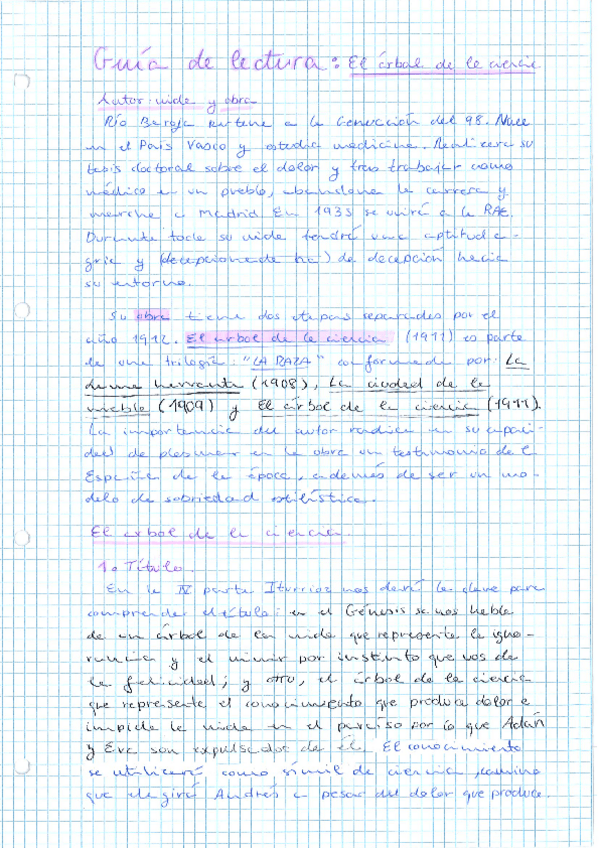 Guía de lectura: El árbol de la ciencia
Autor: vida y obra
Pío Baroja pertene a la Generación del 98. Nace
en el País Vasco y estudia medicina. Realizará su
tesis doctoral sobre el dolor y tras trabajar como
médico en un pueblo, abandona la carrera y
marcha a Madrid. En 1935 se unirá a la RAE.
Durante toda su vida tendrá una aptitud a-
gria y (decepcionada ha) de decepción hacia
su entorno.
Su obra tiene dos etapas separadas por el
año 1912. El árbol de la ciencia (1911) es parte
de una trilogía: "LA RAZA" conformada por: La
dama herrante (1908), La ciudad de la
niebla (1909) y El árbol de la ciencia (1911).
La importancia del autor radica en su capaci-
dad de plasmar en la obra un testimonio de la
España de la época, además de ser un mo-
delo de sobriedad estilística.
El árbol de la ciencia.
1. Título.
En la IV parte Iturrioz nos dará la clave para
comprender el título: en el Génesis se nos habla
de un árbol de la vida que representa la igno-
rancia y el vivir por instinto que nos da
la felicidad; y otro, el árbol de la ciencia
que representa el conocimiento que produce dolor e
impide la vida en el paraíso por lo que Adán
y Eva son expulsados de él. El conocimiento
se utilizará como símil de ciencia, camino
que elegirá Andrés a pesar del dolor que produce.